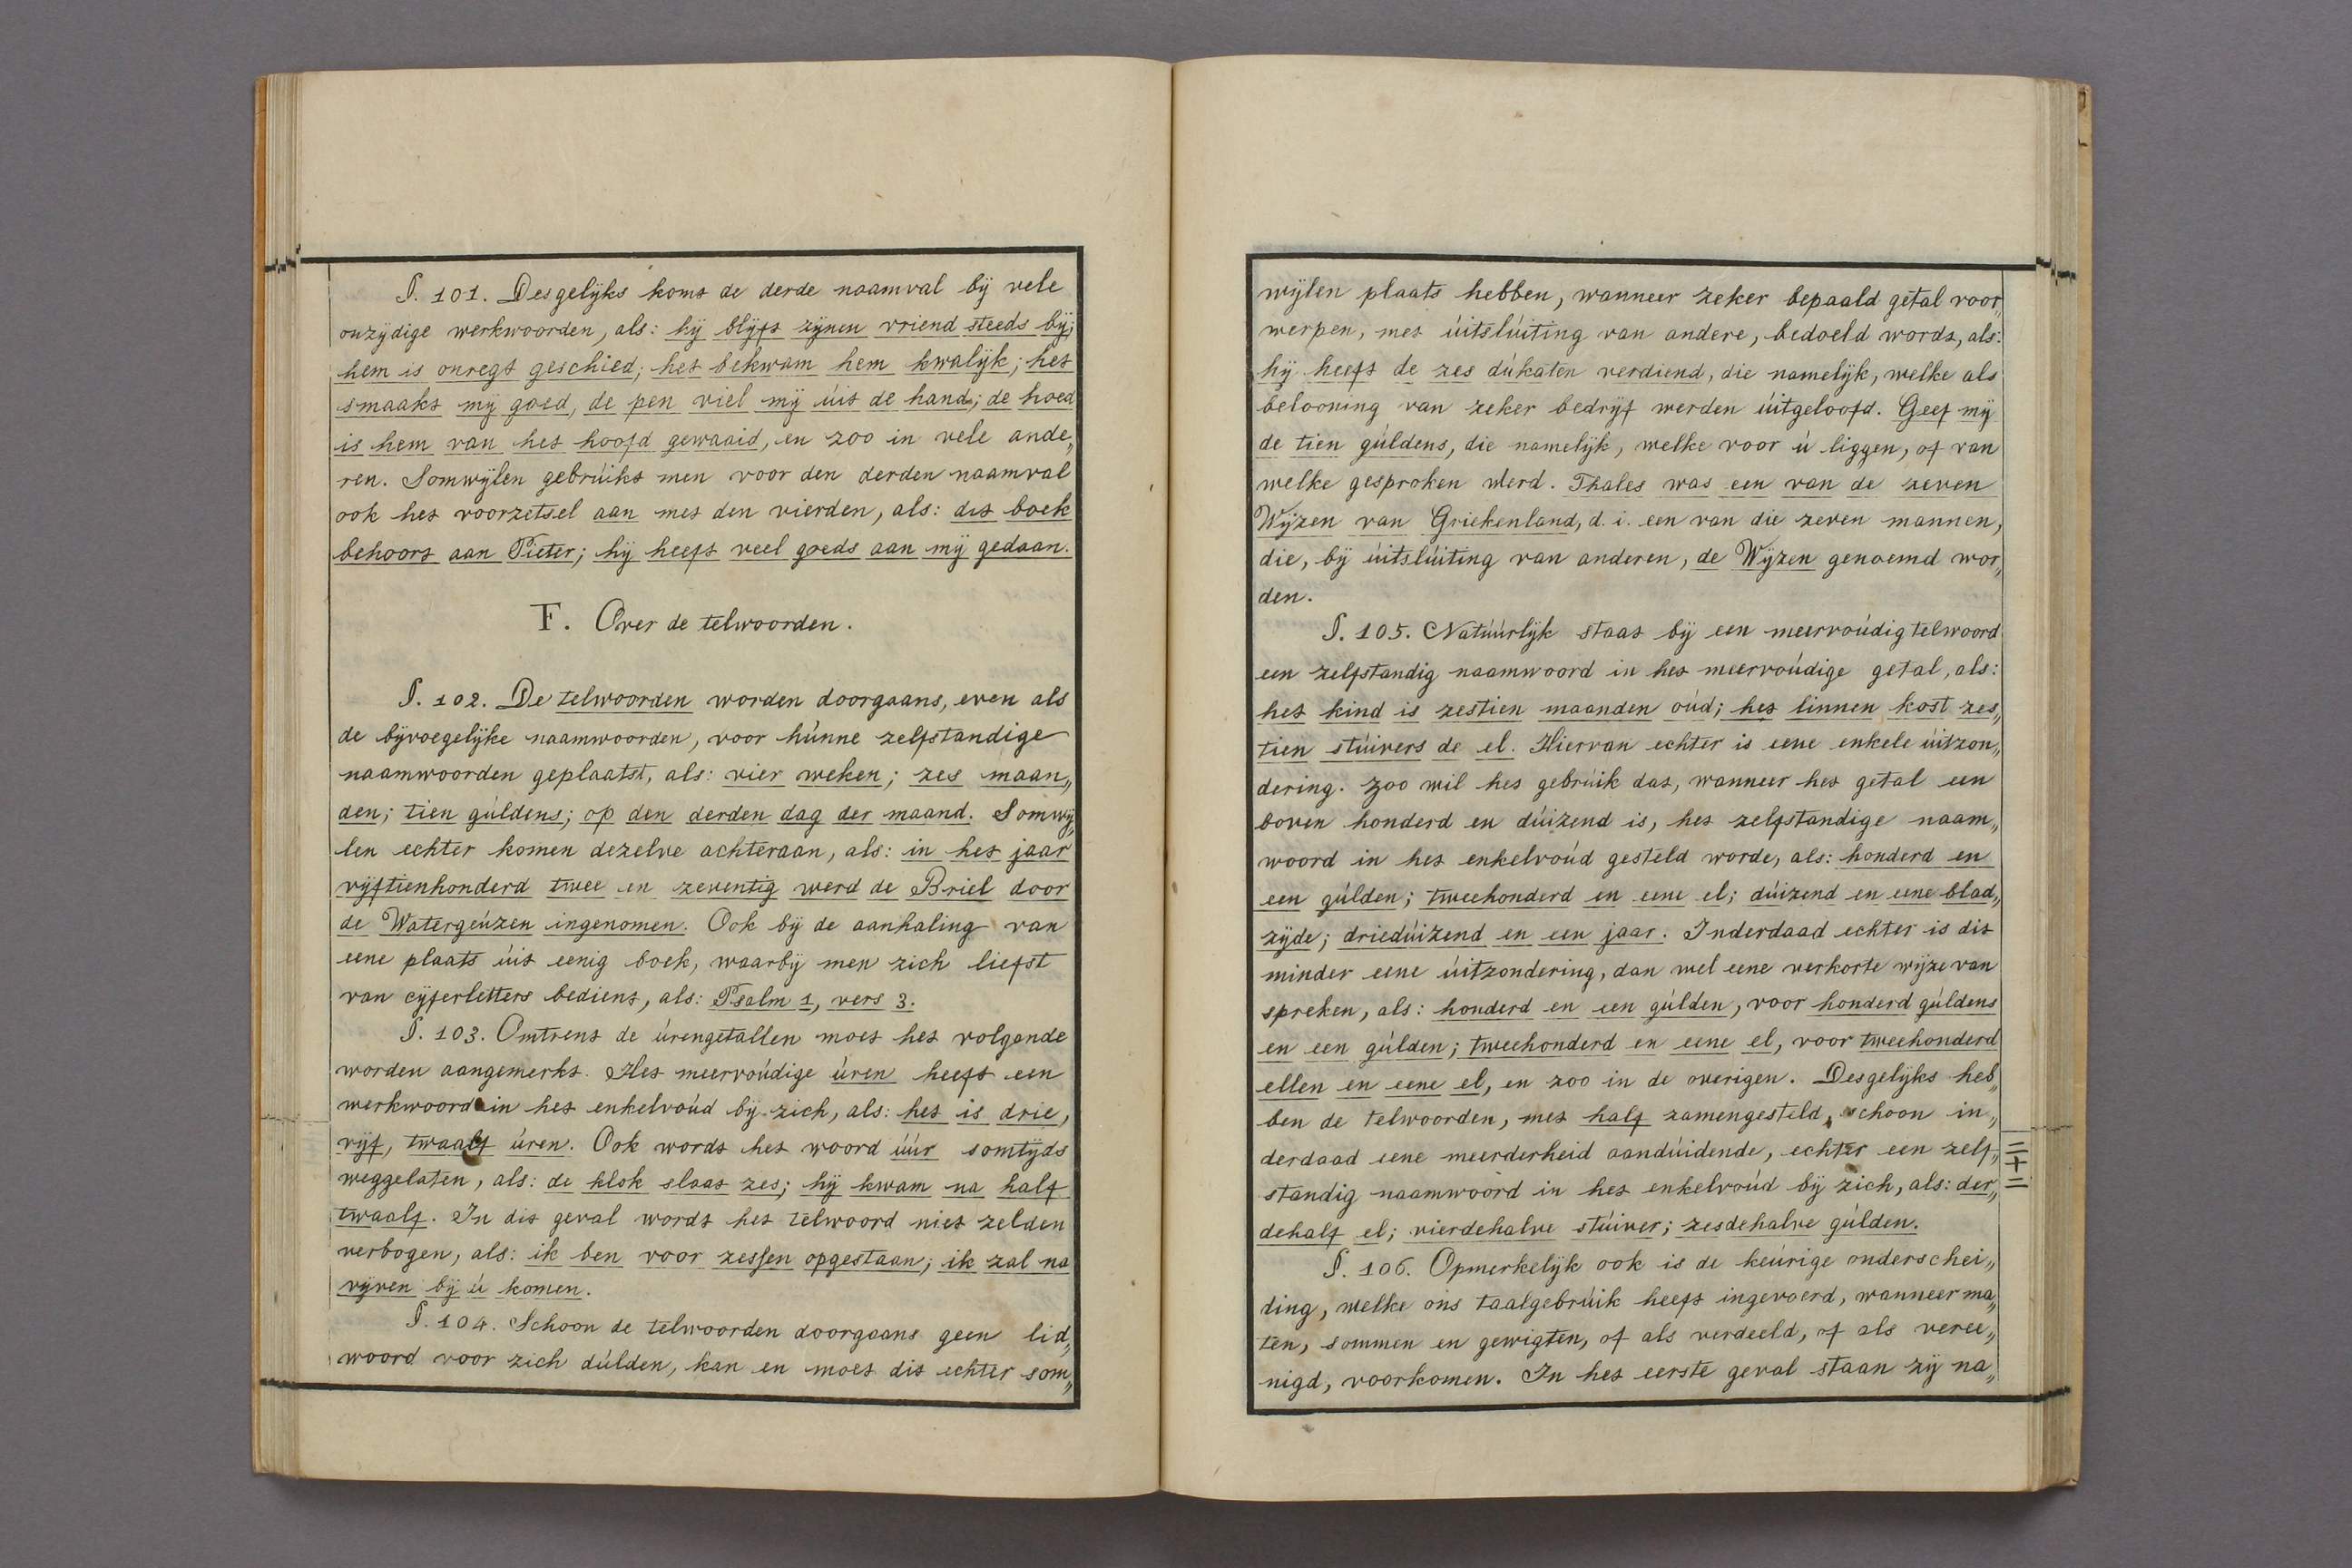 §. 101. Desgelijks komt de derde naamval bij vele
onzijdige werkwoorden, als: hij blijft zijnen vriend steeds bij;
hem is onregt geschied; het bekwam hem kwalijk; het
smaakt mij goed, de pen viel mij úit de hand; de hoed
is hem van het hoofd gewaaid, en zoo in vele ande„
ren. Somwijlen gebrúikt men voor den derden naamval
ook het voorzetsel aan met den vierden, als: dit boek
behoort aan Pieter; hij heeft veel goeds aan mij gedaan.
F. Over de telwoorden.
§. 102. De telwoorden worden doorgaans, even als
de bijvoegelijke naamwoorden, voor húnne zelfstandige
naamwoorden geplaatst, als: vier weken; zes maan„
den; tien gúldens; op den derden dag der maand. Somwij„
len echter komen dezelve achteraan, als: in het jaar
vijftienhonderd twee en zeventig werd de Briel door
de Watergeúzen ingenomen. Ook bij de aanhaling van
eene plaats úit eenig boek, waarbij men zich liefst
van cijferletters bedient, als: Psalm 1, vers 3.
§. 103. Omtrent de úrengetallen moet het volgende
worden aangemerkt. Het meervoúdige úren heeft een
werkwoord in het enkelvoúd bij zich, als: het is drie,
vijf, twaalf úren. Ook wordt het woord úúr somtijds
weggelaten, als: de klok slaat zes; hij kwam na half
twaalf. In dit geval wordt het telwoord niet zelden
verbogen, als: ik ben voor zessen opgestaan; ik zal na
vijven bij ú komen.
§. 104. Schoon de telwoorden doorgaans geen lid„
woord voor zich dúlden, kan en moet dit echter som„
wijlen plaats hebben, wanneer zeker bepaald getal voor„
werpen, met úitslúiting van andere, bedoeld wordt, als:
hij heeft de zes dúkaten verdiend, die namelijk, welke als
belooning van zeker bedrijf werden úitgeloofd. Geef mij
de tien gúldens, die namelijk, welke voor ú liggen, of van
welke gesproken werd. Thales was een van de zeven
Wijzen van Griekenland, d. i. een van die zeven mannen,
die, bij úitslúiting van anderen, de Wijzen genoemd wor„
den.
§. 105. Natúúrlijk staat bij een meervoúdig telwoord
een zelfstandig naamwoord in het meervoúdige getal, als:
het kind is zestien maanden oúd; het linnen kost zes„
tien stúivers de el. Hiervan echter is eene enkele úitzon„
dering. Zoo wil het gebrúik dat, wanneer het getal een
boven honderd en dúizend is, het zelfstandige naam„
woord in het enkelvoúd gesteld worde, als: honderd en
een gúlden; tweehonderd en eene el; dúizend en eene blad„
zijde; driedúizend en een jaar. Inderdaad echter is dit
minder eene úitzondering, dan wel eene verkorte wijze van
spreken, als: honderd en een gúlden, voor honderd gúldens
en een gúlden; tweehonderd en eene el, voor tweehonderd
ellen en eene el, en zoo in de overigen. Desgelijks heb„
ben de telwoorden, met half zamengesteld, schoon in„
derdaad eene meerderheid aandúidende, echter een zelf„
standig naamwoord in het enkelvoúd bij zich, als: der„
dehalf el; vierdehalve stúiver; zesdehalve gúlden.
§. 106. Opmerkelijk ook is de keúrige onderschei„
ding, welke ons taalgebrúik heeft ingevoerd, wanneer ma„
ten, sommen en gewigten, of als verdeeld, of als veree„
nigd, voorkomen. In het eerste geval staan zij na„